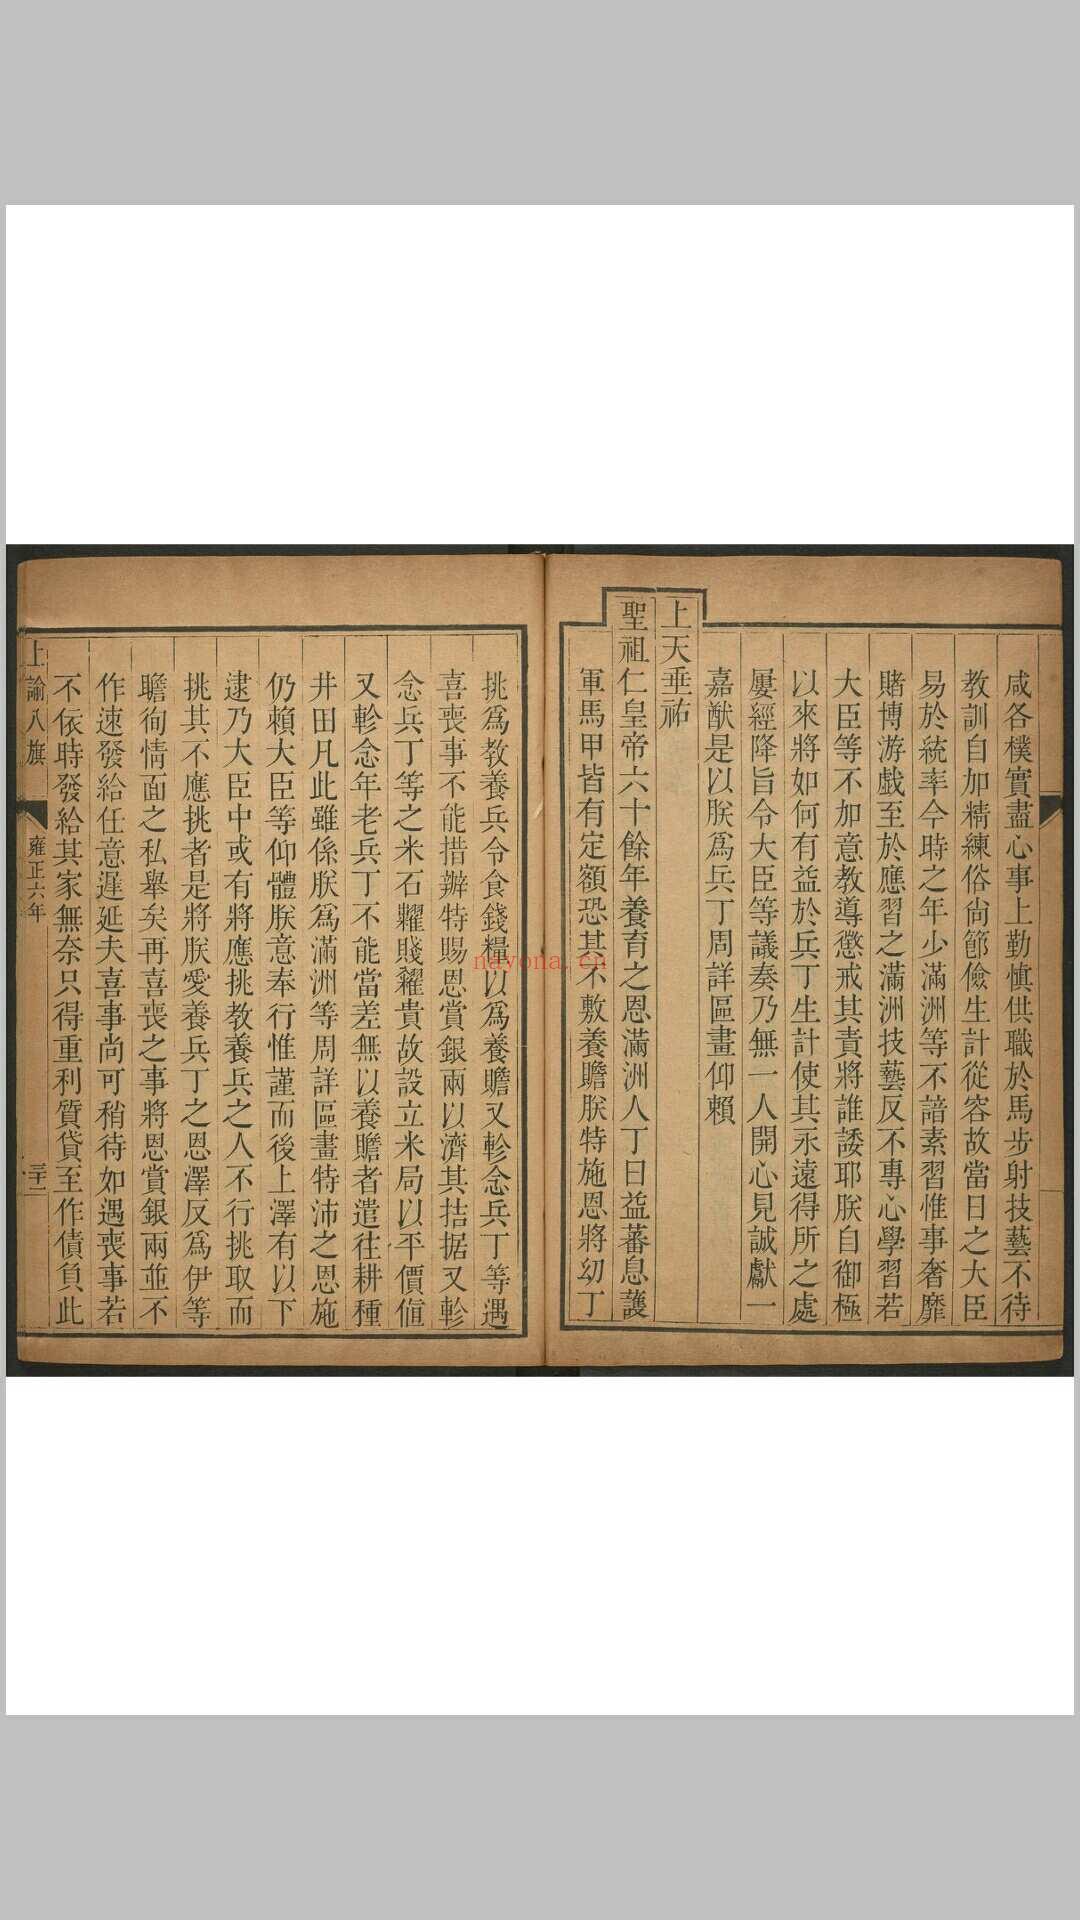 咸各樸實盡心事上勤慎供職於馬步射技藝不待
教訓自加精練俗尚節儉生計從容故當日之大臣
易於統率今時之年少滿洲等不諳素習惟事奢靡
賭博游戲至於應習之滿洲技藝反不專心學習若
大臣等不加意教導懲戒其責將誰諉耶朕自御極
以來將如何有益於兵丁生計使其永遠得所之處
屢經降旨令大臣等議奏乃無一人開心見誠獻一
嘉猷是以朕爲兵丁周詳區畫仰賴
上天垂祐
聖祖仁皇帝六十餘年養育之恩滿洲人丁日益蕃息護
軍馬甲皆有定額恐其不敷養贍朕特施恩將幼丁
挑爲教養兵令食錢糧以爲養贍又軫念兵丁等遇
喜喪事不能措辦特賜恩賞銀兩以濟其拮据又軫
念兵丁等之米石糶賤糴貴故設立米局以平價值
又軫念年老兵丁不能當差無以養贍者遣往耕種
井田凡此雖係朕爲滿洲等周詳區畫特沛之恩施
仍賴大臣等仰體朕意奉行惟謹而後上澤有以下
逮乃大臣中或有將應挑教養兵之人不行挑取而
挑其不應挑者是將朕愛養兵丁之恩澤反爲伊等
瞻徇情面之私舉矣再喜喪之事將恩賞銀兩並不
作速發給任意遲延夫喜事尚可稍待如遇喪事若
不依時發給其家無奈只得重利質貸至作債負此
上諭八旗 雍正六年 三十二
nayona.cn